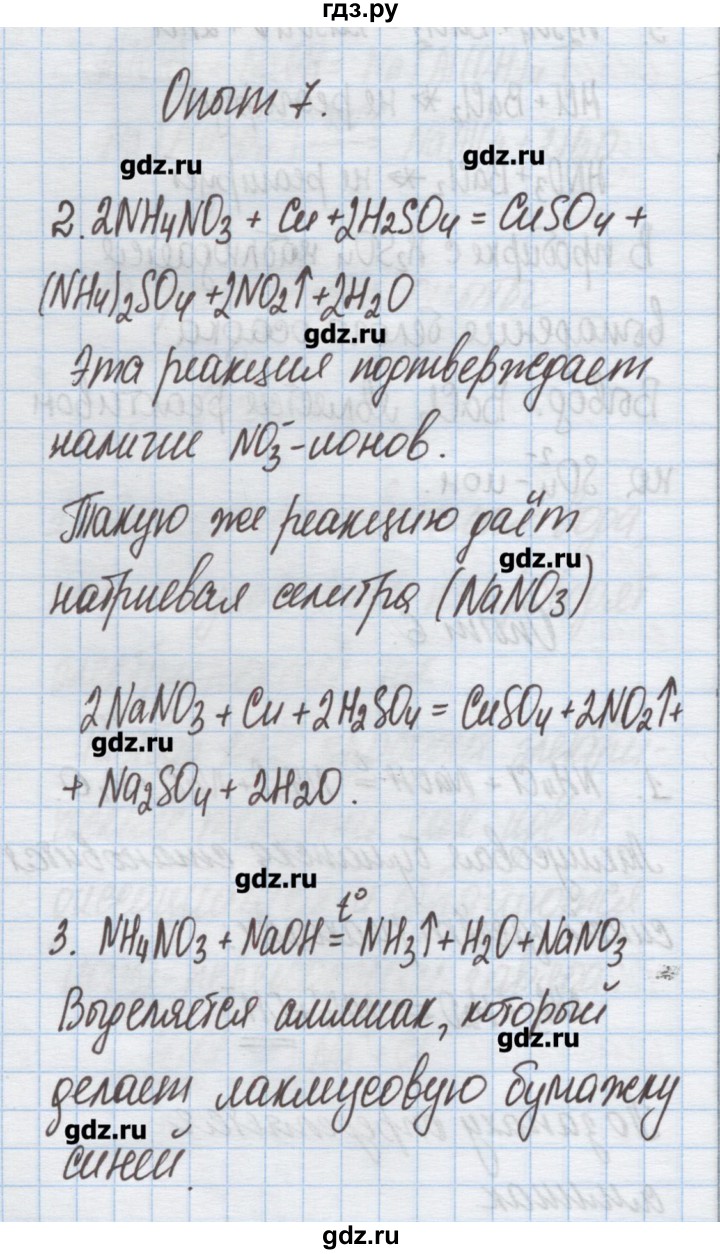 гдз.ру
Опыт 7.
gdz.ru
gdz.ru
2. 2NH4NO3 + Cu + 2H2SO4 = CuSO4 +
(NH4)2SO4 + 2NO2↑ + 2H2O
gdz.ru
Эта реакция подтверждает
наличие NO3⁻-ионов.
Такую же реакцию даёт
gdz.ru
натриевая селитра (NaNO3)
2NaNO3 + Cu + 2H2SO4 = CuSO4 + 2NO2↑ +
gdz.ru
+ Na2SO4 + 2H2O.
gdz.ru
t°
3. NH4NO3 + NaOH = NH3↑ + H2O + NaNO3
Выделяется аммиак, который
gdz.ru
делает лакмусовую бумажку
gdz.ru
синей.
gdz.ru